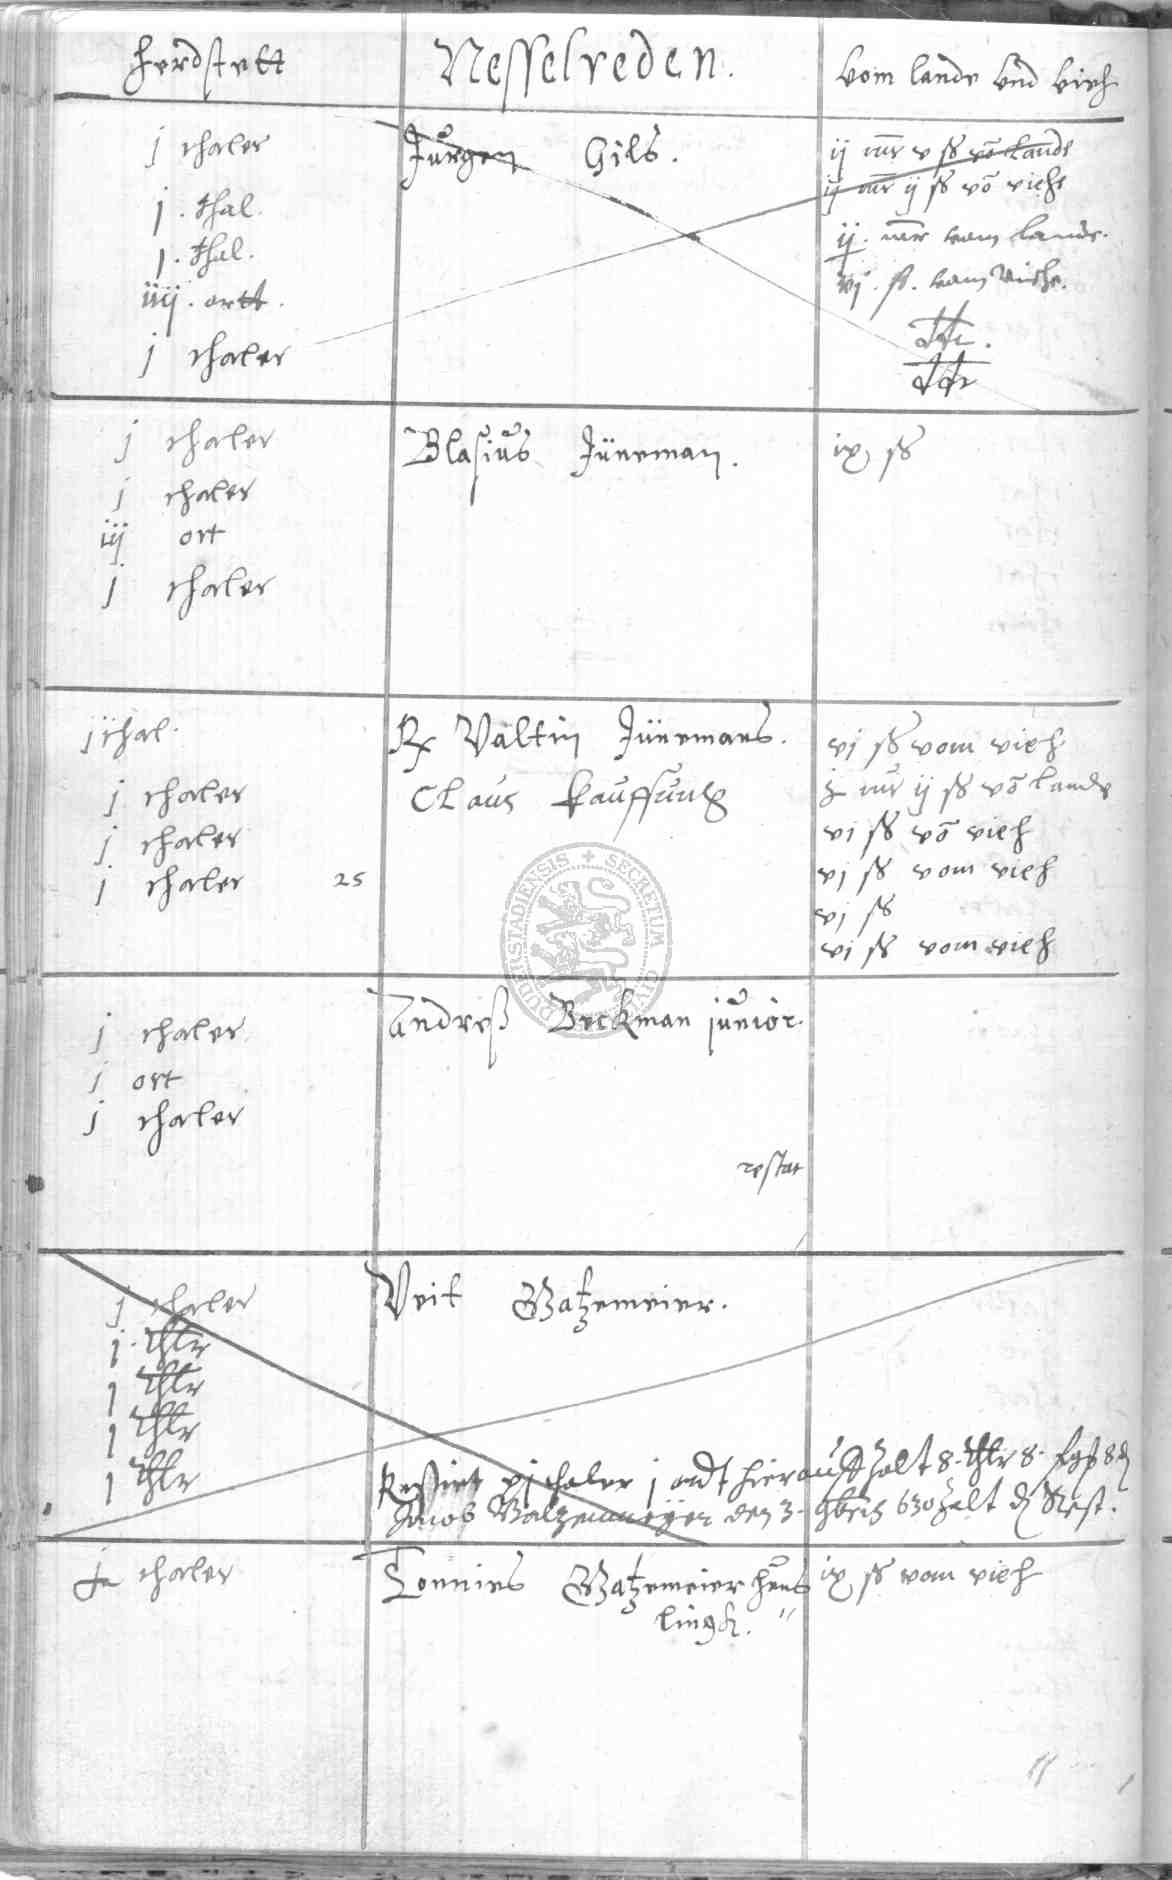 herdstett
Nesselreden.
vom lande vnd vieh
j thaler
j. thal.
j. thal.
iiij. ortt.
j thaler
Jurgen Gils.
ij mr v ß võ lande
ij mr ij ß võ viehe
ij. mr vam lande.
vj. ß. vam viehe.
j thaler
j thaler
iij ort
j thaler
Blasius Jüneman.
ix ß
j thal.
j thaler
j thaler
j thaler
25
Valtin Jünemans.
Claus kauffung
vj ß vom vieh
mr ij ß võ lande
vj ß võ vieh
vj ß vom vieh
vj ß
vj ß vom vieh
SECRETUM CIVI
DUDERSTADIENSIS
j thaler
j ort
j thaler
Andreß Beckman junior.
restat
j thaler
j. thlr
j thlr
j thlr
j thlr
Veit Watzemeier.
Restirt xj thaler j ordt hierauff zalt 8. thlr 8.
Jacob Watzenmeyer den 3. 9bris 630 zalt d Rest.
thaler
Tonnies Watzemeier heus
lingk.
ix ß vom vieh